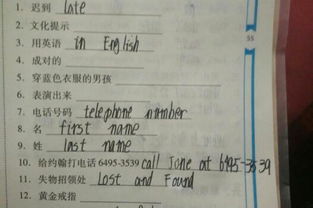 1. 迟到 late
2. 文化提示
3. 用英语 in English
4. 成对的
5. 穿蓝色衣服的男孩
6. 表演出来
7. 电话号码 telephone number
8. 名 first name
9. 姓 last name
10. 给约翰打电话 6495-3539 call Jone at 6495-3539
11. 失物招领处 Lost and Found
12. 黄金戒指
55